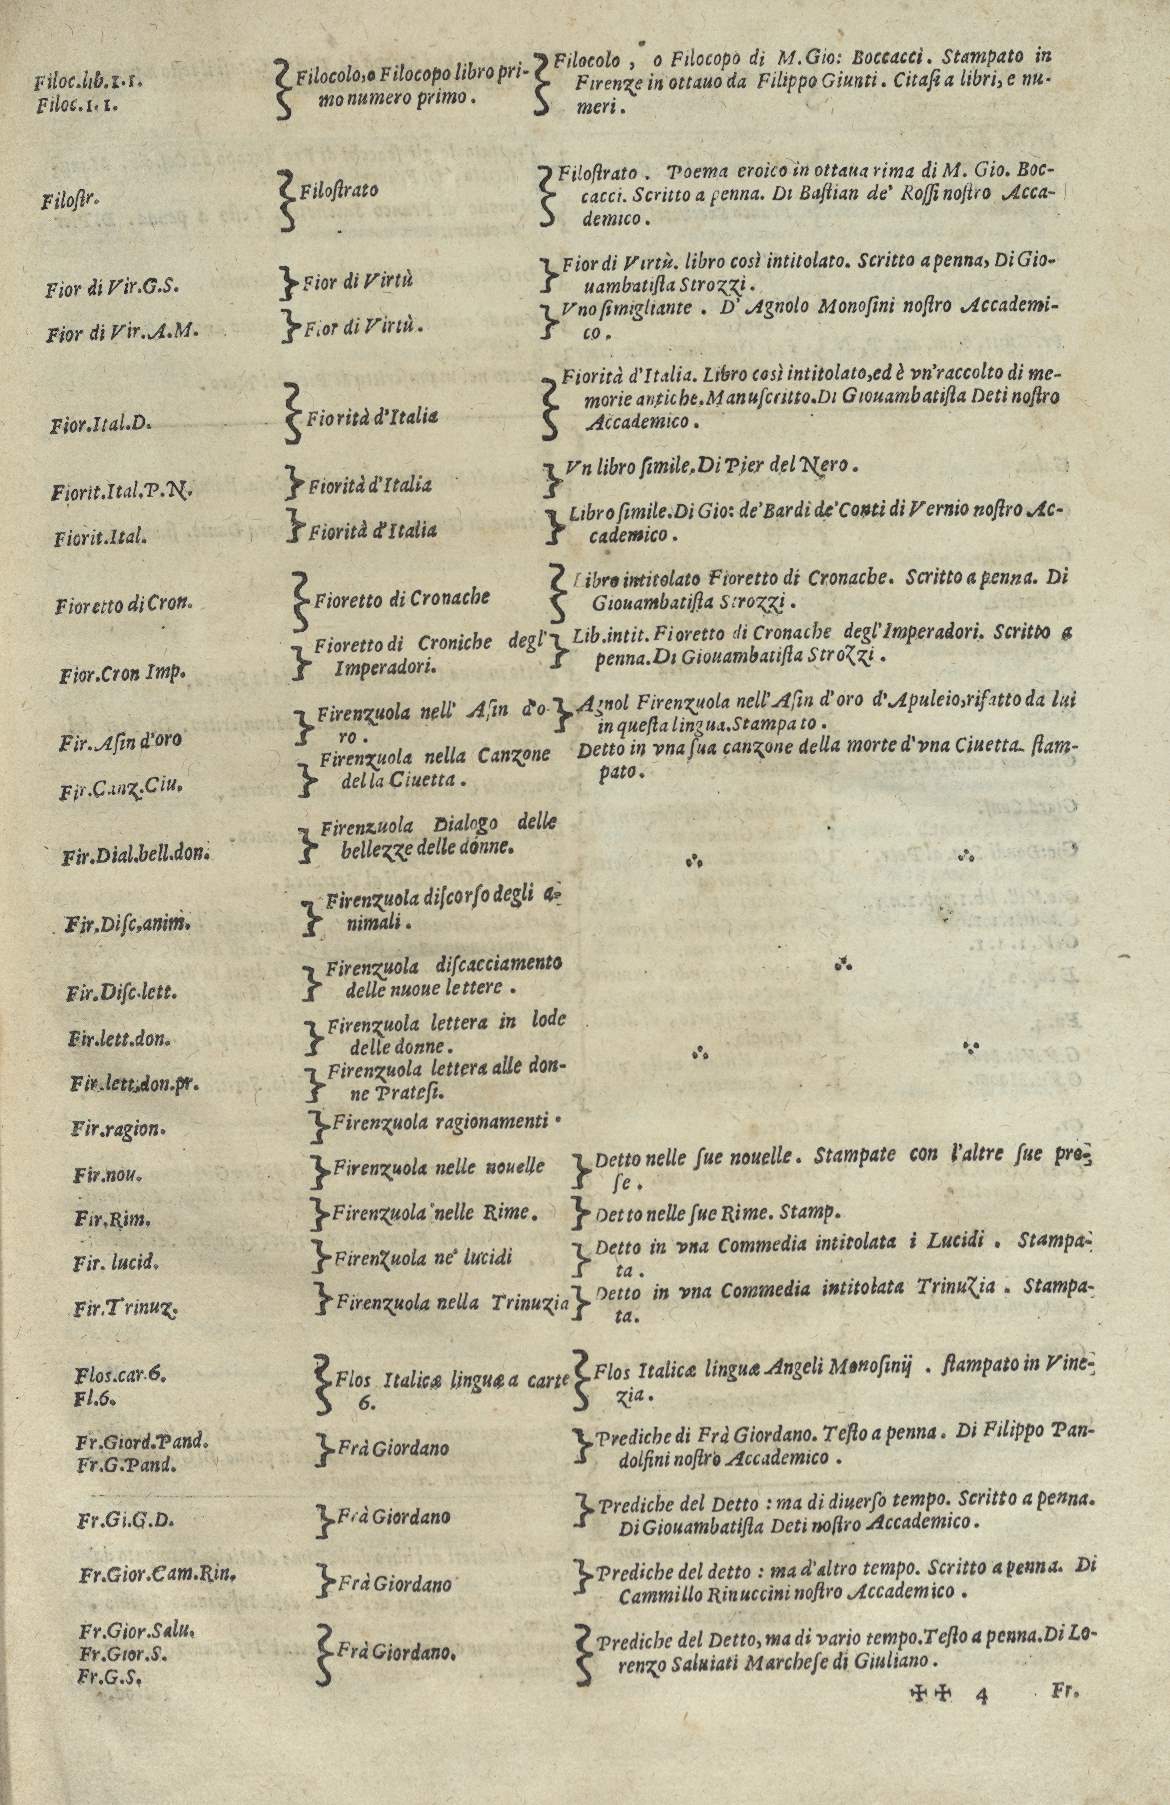 Filoc.lib.1.1.
Filoc.1.1.
Filocolo, o Filocopo libro pri-
mo numero primo.
Filocolo, o Filocopo di M. Gio: Boccacci. Stampato in
Firenze in ottauo da Filippo Giunti. Citaſi a libri, e nu-
meri.
Filoſtr.
Filoſtrato
Filoſtrato. Poema eroico in ottaua rima di M. Gio. Boc-
cacci. Scritto a penna. Di Baſtian de' Roſſi noſtro Acca-
demico.
Fior di Vir.G.S.
Fior di Virtù
Fior di Virtù. libro così intitolato. Scritto a penna, Di Gio-
uambatiſta Strozzi.
Fior di Vir.A.M.
Fior di Virtù.
Vno ſimigliante. D' Agnolo Monoſini noſtro Accademi-
co.
Fior.Ital.D.
Fiorità d'Italia
Fiorità d'Italia. Libro così intitolato, ed è vn'raccolto di me-
morie antiche. Manuſcritto. Di Giouambatiſta Deti noſtro
Accademico.
Fiorit.Ital.P.N.
Fiorità d'Italia
Vn libro ſimile. Di Pier del Nero.
Fiorit.Ital.
Fiorità d'Italia
Libro ſimile. Di Gio: de'Bardi de'Conti di Vernio noſtro Ac-
cademico.
Fioretto di Cron.
Fioretto di Cronache
Libro intitolato Fioretto di Cronache. Scritto a penna. Di
Giouambatiſta Strozzi.
Fior.Cron Imp.
Fioretto di Croniche degl'
Imperadori.
Lib.intit. Fioretto di Cronache degl'Imperadori. Scritto a
penna. Di Giouambatiſta Strozzi.
Fir.Aſin d'oro
Firenzuola nell' Aſin d'o-
ro.
Agnol Firenzuola nell'Aſin d'oro d'Apuleio, rifatto da lui
in queſta lingua. Stampato.
Fir.Canz.Ciu.
Firenzuola nella Canzone
della Ciuetta.
Detto in vna ſua canzone della morte d'vna Ciuetta. ſtam-
pato.
Fir.Dial.bell.don.
Firenzuola Dialogo delle
bellezze delle donne.
Fir.Diſc.anim.
Firenzuola diſcorſo degli a-
nimali.
Fir.Diſc.lett.
Firenzuola diſcacciamento
delle nuoue lettere.
Fir.lett.don.
Firenzuola lettera in lode
delle donne.
Fir.lett.don.pr.
Firenzuola lettera alle don-
ne Prateſi.
Fir.ragion.
Firenzuola ragionamenti.
Fir.nou.
Firenzuola nelle nouelle
Detto nelle ſue nouelle. Stampate con l'altre ſue pro-
ſe.
Fir.Rim.
Firenzuola nelle Rime.
Detto nelle ſue Rime. Stamp.
Fir. lucid.
Firenzuola ne' lucidi
Detto in vna Commedia intitolata i Lucidi. Stampa-
ta.
Fir.Trinuz.
Firenzuola nella Trinuzia
Detto in vna Commedia intitolata Trinuzia. Stampa-
ta.
Flos.car.6.
Fl.6.
Flos Italicæ linguæ a carte
6.
Flos Italicæ linguæ Angeli Monoſinij. ſtampato in Vine-
zia.
Fr.Giord.Pand.
Fr.G.Pand.
Frà Giordano
Prediche di Frà Giordano. Teſto a penna. Di Filippo Pan-
dolfini noſtro Accademico.
Fr.Gi.G.D.
Frà Giordano
Prediche del Detto: ma di diuerſo tempo. Scritto a penna.
Di Giouambatiſta Deti noſtro Accademico.
Fr.Gior.Cam.Rin.
Frà Giordano
Prediche del detto: ma d'altro tempo. Scritto a penna. Di
Cammillo Rinuccini noſtro Accademico.
Fr.Gior.Salu.
Fr.Gior.S.
Fr.G.S.
Frà Giordano.
Prediche del Detto, ma di vario tempo. Teſto a penna. Di Lo-
renzo Saluiati Marcheſe di Giuliano.
✠✠ 4 Fr.